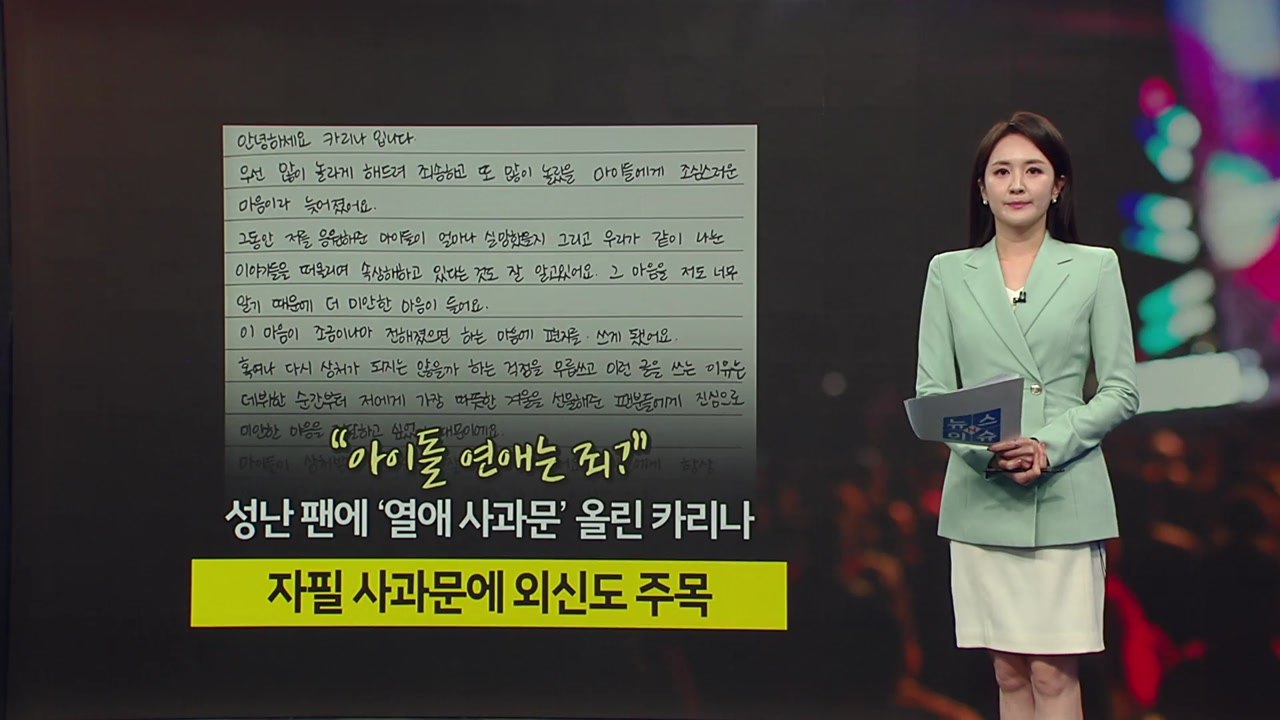 안녕하세요 카리나 입니다.
우선 많이 놀라게 해드려 죄송하고 또 많이 놀랐을 마이들에게 조심스러운
마음이라 늦어졌어요.
그동안 저를 응원해준 마이들이 얼마나 실망했을지 그리고 우리가 같이 나눈
이야기들을 떠올리며 속상해하고 있다는 것도 잘 알고있어요. 그 마음을 저도 너무
알기 때문에 더 미안한 마음이 들어요.
이 마음이 조금이나마 전해졌으면 하는 마음에 편지를 쓰게 됐어요.
혹여나 다시 상처가 되지는 않을까 하는 걱정을 무릅쓰고 이런 글을 쓰는 이유는
데뷔한 순간부터 저에게 가장 따뜻한 겨울을 선물해준 팬분들에게 진심으로
미안한 마음을 하고 때문이에요
마이들이
“아이돌 연애는 죄?”
성난 팬에 ‘열애 사과문’ 올린 카리나
자필 사과문에 외신도 주목
뉴스
이슈